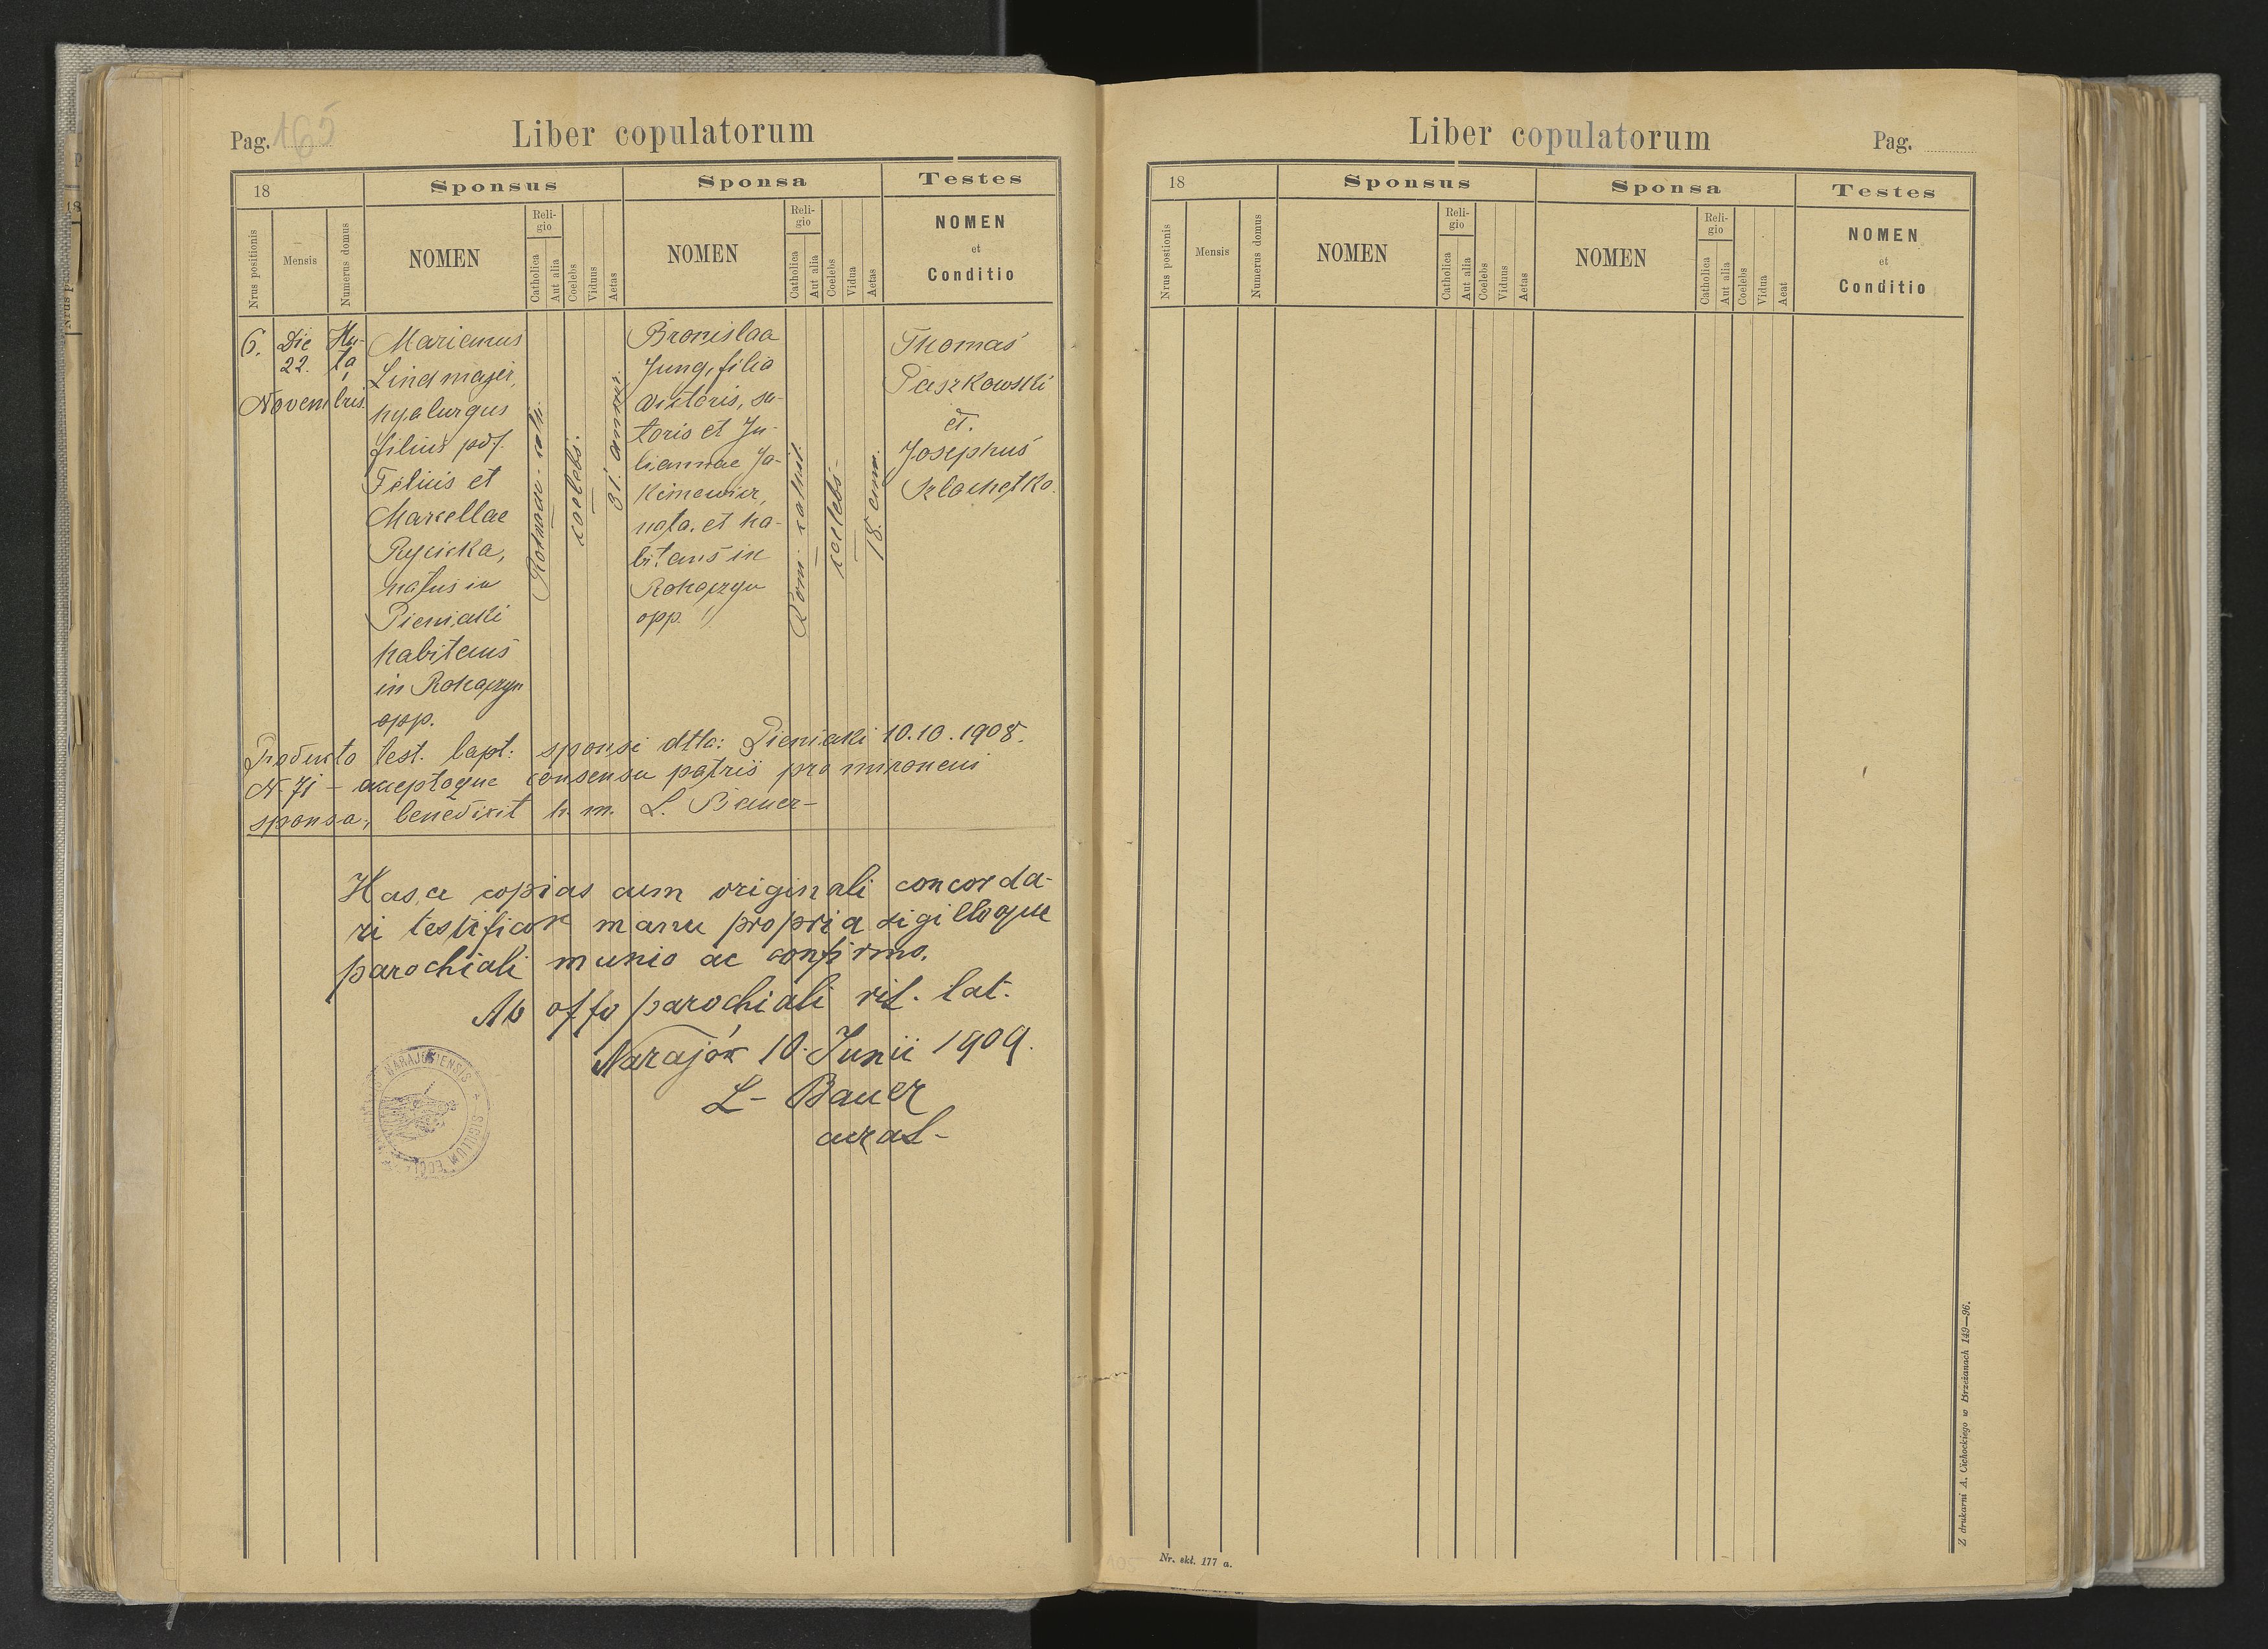 Pag. 165
Liber copulatorum
18
Sponsus
Sponsa
Testes
Nrus positionis
Mensis
Numerus domus
NOMEN
Religio
Catholica
Aut alia
Coelebs
Viduus
Aetas
NOMEN
Religio
Catholica
Aut alia
Coelebs
Vidua
Aetas
NOMEN
et
Conditio
6.
Die
22.
Novembris
Hu-
ta
Marianus
Lindmajer,
hyalurgus
filius pdf.
Felicis et
Marcellae
Rycicka,
natus in
Pieniaki
habitans
in Rohaczyn
opp.
Roman. cath.
coelebs.
31. annor.
Bronislaa
Jung, filia
Victoris, su-
toris et Ju-
liannae Ja-
kimowicz,
nata et ha-
bitans in
Rohaczyn
opp.
Rom. cathol.
coelebs
18. ann.
Thomas
Paszkowski
et.
Josephus
Szlachetko.
Producto test. bapt: sponsi dtto: Pieniaki 10.10.1908.
N 71 - acceptoque consensu patris pro minoreni
sponsa, benedixit h. m. L. Bauer-
Hasce copias cum originali concorda-
ri testificor manu propria sigilloque
parochiali munio ac confirmo.
Ab offo parochiali rit. lat.
Narajów 10. Junii 1909.
L- Bauer
curat-
NARAJOVIENSIS
SIGILLUM ECCL
Liber copulatorum
Pag.
18
Sponsus
Sponsa
Testes
Nrus postionis
Mensis
Numerus domus
NOMEN
Religio
Catholica
Aut alia
Coelebs
Viduus
Aetas
NOMEN
Religio
Catholica
Aut alia
Coelebs
Vidua
Aeat
NOMEN
et
Conditio
Z drukarni A. Cichockiego w Brzeżanach 149—96.
Nr. skł. 177 a.